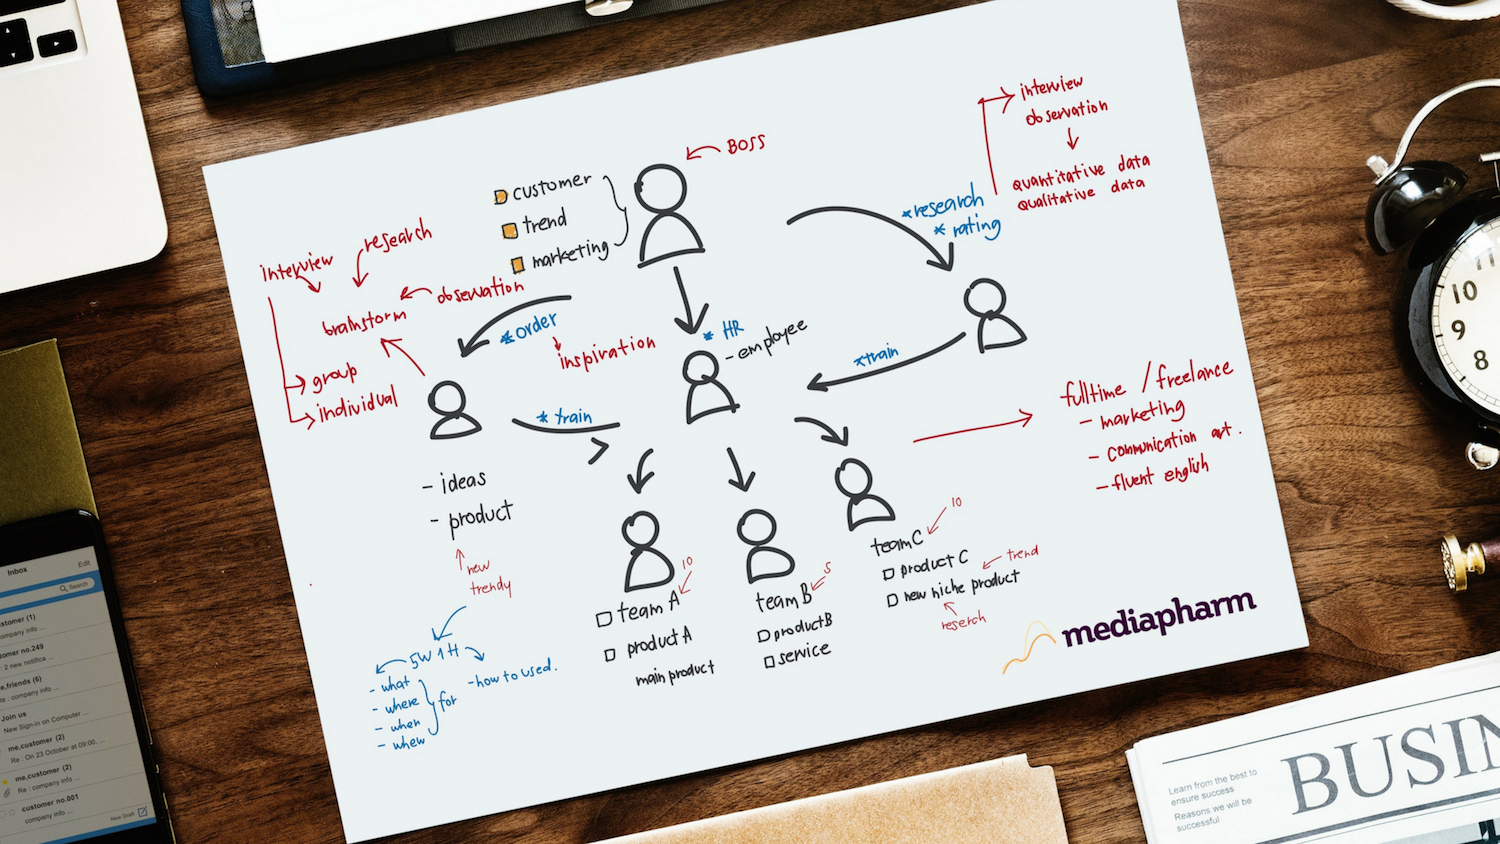 BOSS
customer
trend
marketing
interview
observation
quantitative data
qualitative data
*research
* rating
interview
research
observation
brainstorm
group
individual
*order
inspiration
* HR
- employee
*train
* train
- ideas
- product
new
trendy
5W 1H
- what
- where
- when
- whew
for
-how to used.
10
team A
product A
main product
5
team B
product B
service
10
team C
product C
trend
new niche product
reserch
fulltime / freelance
- marketing
- communication art.
- fluent english
mediapharm
Inbox
Edit
Search
customer (1)
company info ...
customer no.249
2 new notifica ...
me,friends (6)
Re : company info ...
Join us
New Sign-in on Computer ...
me,customer (2)
Re : On 23 October at 09:00, ...
me,customer (2)
Re : company info ...
customer no.001
company info ...
New Draft
11
10
9
8
Learn from the best to
ensure success
Reasons we will be
successful
BUSIN